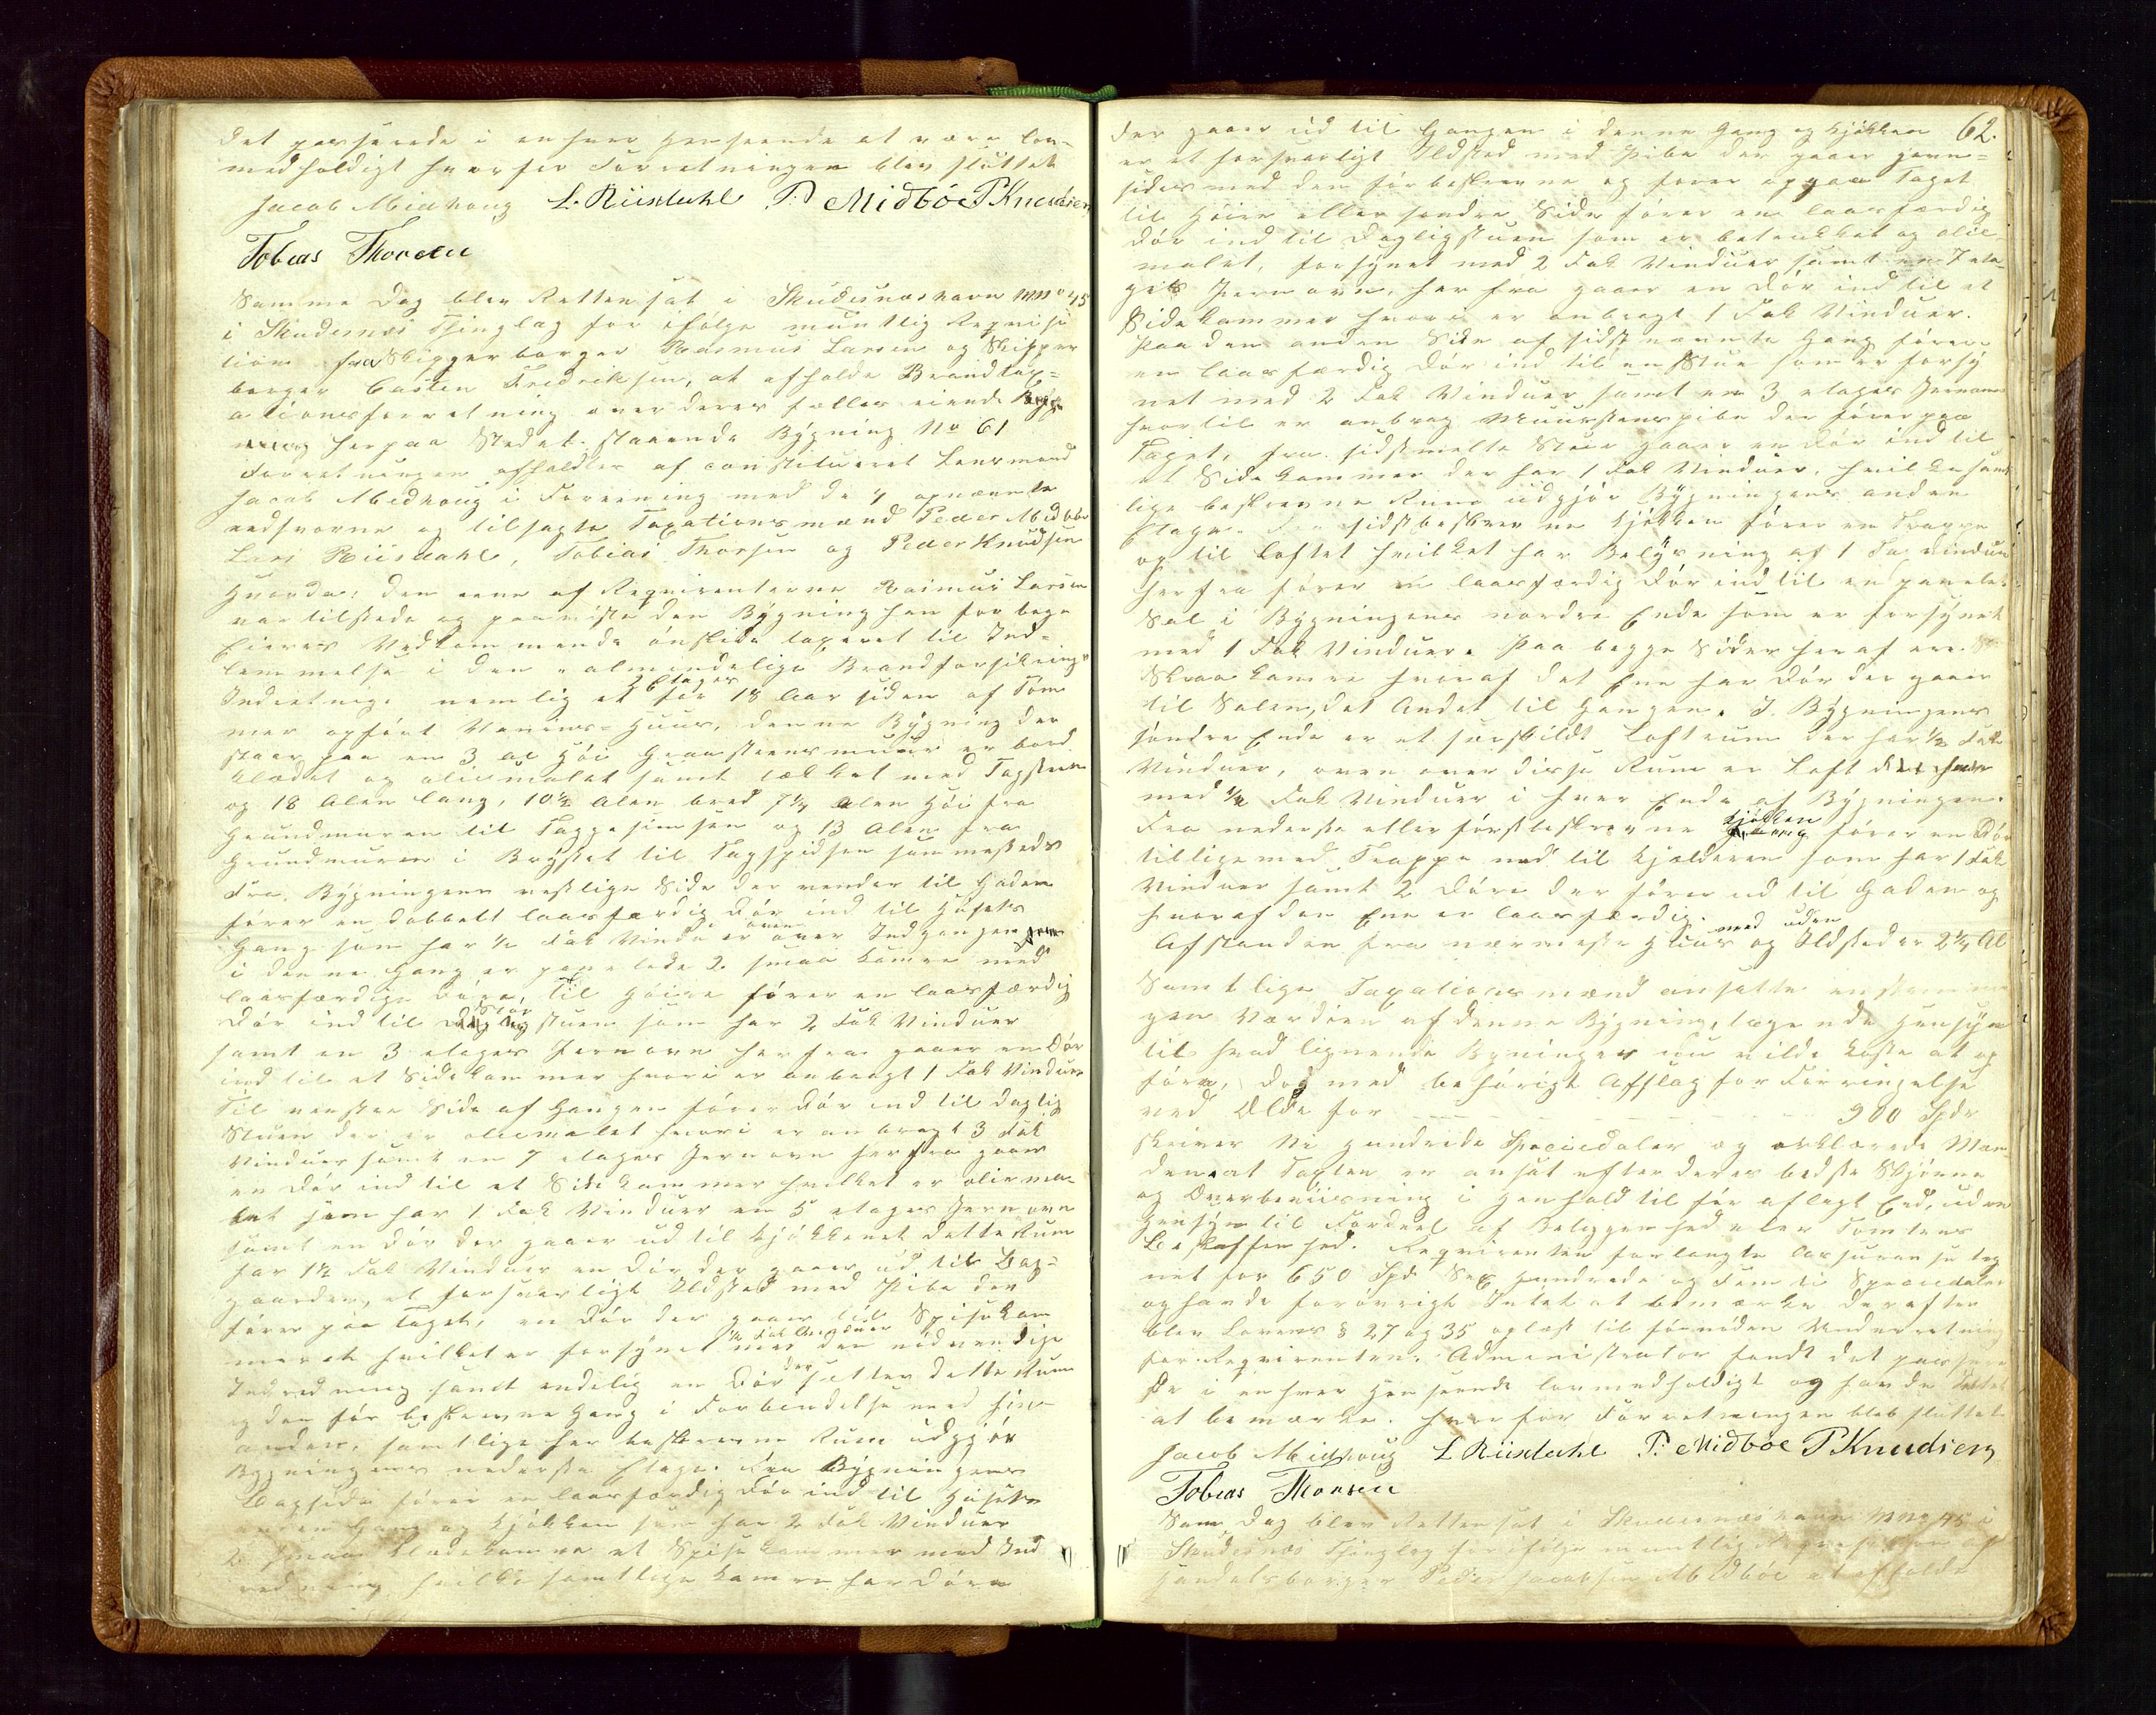 det passerede i enhver Henseende at være lov-
medholdigt hvorfor Forretningen blev sluttet
Jacob Midhoug L. Riisdahl P: Midböe P Knudsen
Tobias Thorsen
Samme Dag blev Retten sat i Skudesnæshavn MNo 45
i Skudesnæs Thinglag for ifølge muntlig Reqvisi
tion fra Skipperborger Rasmus Larsen og Skipper
borger Casten Fredriksen, at afholde Brandtax-
ationsforretning over deres fælles eiende
herpaa Stedet staaende Bÿgning No 61
Forretningen afholdtes af constitueret Lensmand
Jacob Midhoug i Forening med de 4 opnævnte
edsvorne og tilsagte Taxationsmænd Peder Midbøe
Lars Riisdahl, Tobias Thorsen og Peder Knudsen
Hvorda: den eene af Reqvirenterne Rasmus Larsen
var tilstede og paaviste den Bÿgning han for bege
Eieres Vedkommende ønskede taxeret til Ind-
lemmelse i den almindelige Brandforsikrings
Indretning: nemlig et 2 Etages for 18 Aar siden af Töm
mer opført Vaanings-Huus, denne Bÿgning der
staar paa en 3 al höi Graasteensmuur er bord
klædt og oliemalet samt tækket med Tagsteen
og 18 Alen lang, 10½ Alen bred 7¼ Alen höi fra
Grundmuren til Taggesimsen og 13 Alen fra
Grundmuren i Brÿstet til Tagspidsen sammesteds
Fra Bÿgningens vestlige Side der vender til Gaden
fører en dobbelt laasfærdig Dör ind til Husets
Gang som har ½ Fak Vinduer over Indgangen
i denne Gang er panelede 2 smaa Kamre med
laasfærdige Döre, til Höire fører en laasfærdig
Dör ind til Storstuen som har 2 Fak Vinduer
samt en 3 etages Jernovn herfra gaaer en Dör
ind til et Sidekammer hvori er anbragt 1 Fak Vinduer
Til venstre Side af Gangen fører Dör ind til daglig
Stuen der er oliemalet hvori er anbragt 3 Fak
Vinduer samt en 7 etages Jernovn herfra gaaer
en Dör ind til et Sidekammer hvilket er oliema-
let som har 1 Fak Vinduer en 5 etages Jernovn
samt en Dör der gaaer ud til Kjökkenet dette Rum
har 1½ Fak Vinduer en Dör der gaaer ud til Bag-
gaarden, et forsvarligt Ildsted med Pibe der
fører paa Taget, en Dör der gaaer til Spisekam
meret hvilket er forsÿnet med ½ Fak Vinduer den nödvendige
Indredning samt endelig en Dör der sætter dette Rum
og den før beskrevne Gang i Forbindelse med hin-
anden, samtlige her beskrevne Rum udgjör
Bÿgningens nederste Etage. Fra Bÿgningens
Bagside fører en laasfærdig Dör ind til Husets
anden Gang og Kjökken som har 2 Fak Vinduer
2 smaa Klædekamre et Spisekammer med Ind
redning hvilke samtlige Kamre har Döre
62.
der gaaer ud til Gangen i denne Gang og Kjökken
er et forsvarligt Ildsted med Pibe der gaaer jevn-
sides med den førbeskrevne og fører op paa Taget
til Höire eller söndre Side fører en laasfærdig
Dör ind til Dagligstuen som er betrækket og olie
malet, forsÿnet med 2 Fak Vinduer samt en 7 eta-
ges Jernovn, her fra gaaer en Dör ind til et
Sidekammer hvori er anbragt 1 Fak Vinduer.
Paa den anden Side af sidst nævnte Gang fører
en laasfærdig Dör ind til en Stue som er forsÿ
net med 2 Fak Vinduer samt en 3 etages Jernovn
hvortil er anbrag Muursteenspibe der fører paa
Taget, fra sidstmeldte Stue gaaer en Dör ind til
et Sidekammer der har 1 Fak Vinduer, hvilke samt
lige beskrevne Rum udgjör Bÿgningens anden
Etage. Fra sidstbeskrevne Kjökken fører en Trappe
op til Loftet hvilket har Belÿsning af 1 Fa Vinduer
herfra fører en laasfærdig Dör ind til en panelet
Sal i Bÿgningens nordre Ende som er forsÿnet
med 1 Fak Vinduer. Paa begge Sider heraf ere
Skraakamre hvoraf det Ene har Dör der gaaer
til Salen, det Andet til Gangen. I Bÿgningens
söndre Ende er et særskildt Loftrum der har ½ Fak
Vinduer, oven over disse Rum er Loft
med ¼ Fak Vinduer i hver Ende af Bÿgningen.
Fra nederste eller førstbeskrevne Kjökken fører en Dör
tilligemed Trappe ned til Kjælderen som har 1 Fak
Vinduer samt 2 Döre der fører ud til Gaden og
hvoraf den Ene er laasfærdig.
Afstanden fra nærmeste Huus med uden og Ildsted er 2¼ Al
Samtlige Taxationsmænd ansatte enstemmi
gen Værdien af denne Bÿgning, tagende Hensÿn
til hvad lignende Bÿninger nu vilde koste at op
føre, dog med behörigt Afslag for Forringelse
ved Ælde for 900 Spdr
skriver Ni Hundrede Speciedaler og erklærede Mæn
dene at Taxten er ansat efter deres bedste Skjönne
og Overbeviisning i Henhold til før aflagt Eed, uden
Hensÿn til Fordeel af Beliggenhed eller Tomtens
Beskaffenhed. Reqvirenten forlangte Assurance teg
net for 650 Spd Sex Hundrede og Femti Speciedaler
og havde forøvrigt Intet at bemærke derefter
blev Lovens § 27 og 35 oplæst til fornöden Underretning
for Reqvirenten. Administrator fandt det passere
de i enhver Henseende lovmedholdigt og havde Intet
at bemærke. hvorfor Forretningen blev sluttet
Jacob Midhoug L Riisdahl P: Midböe P Knudsen
Tobias Thorsen
Sam Dag blev Retten sat i Skudesnæshavn MNo 45 i
Skudesnæs Thinglag for ifølge muntlig Reqvisition af
Handelsborger Peder Jacobsen Midböe at afholde